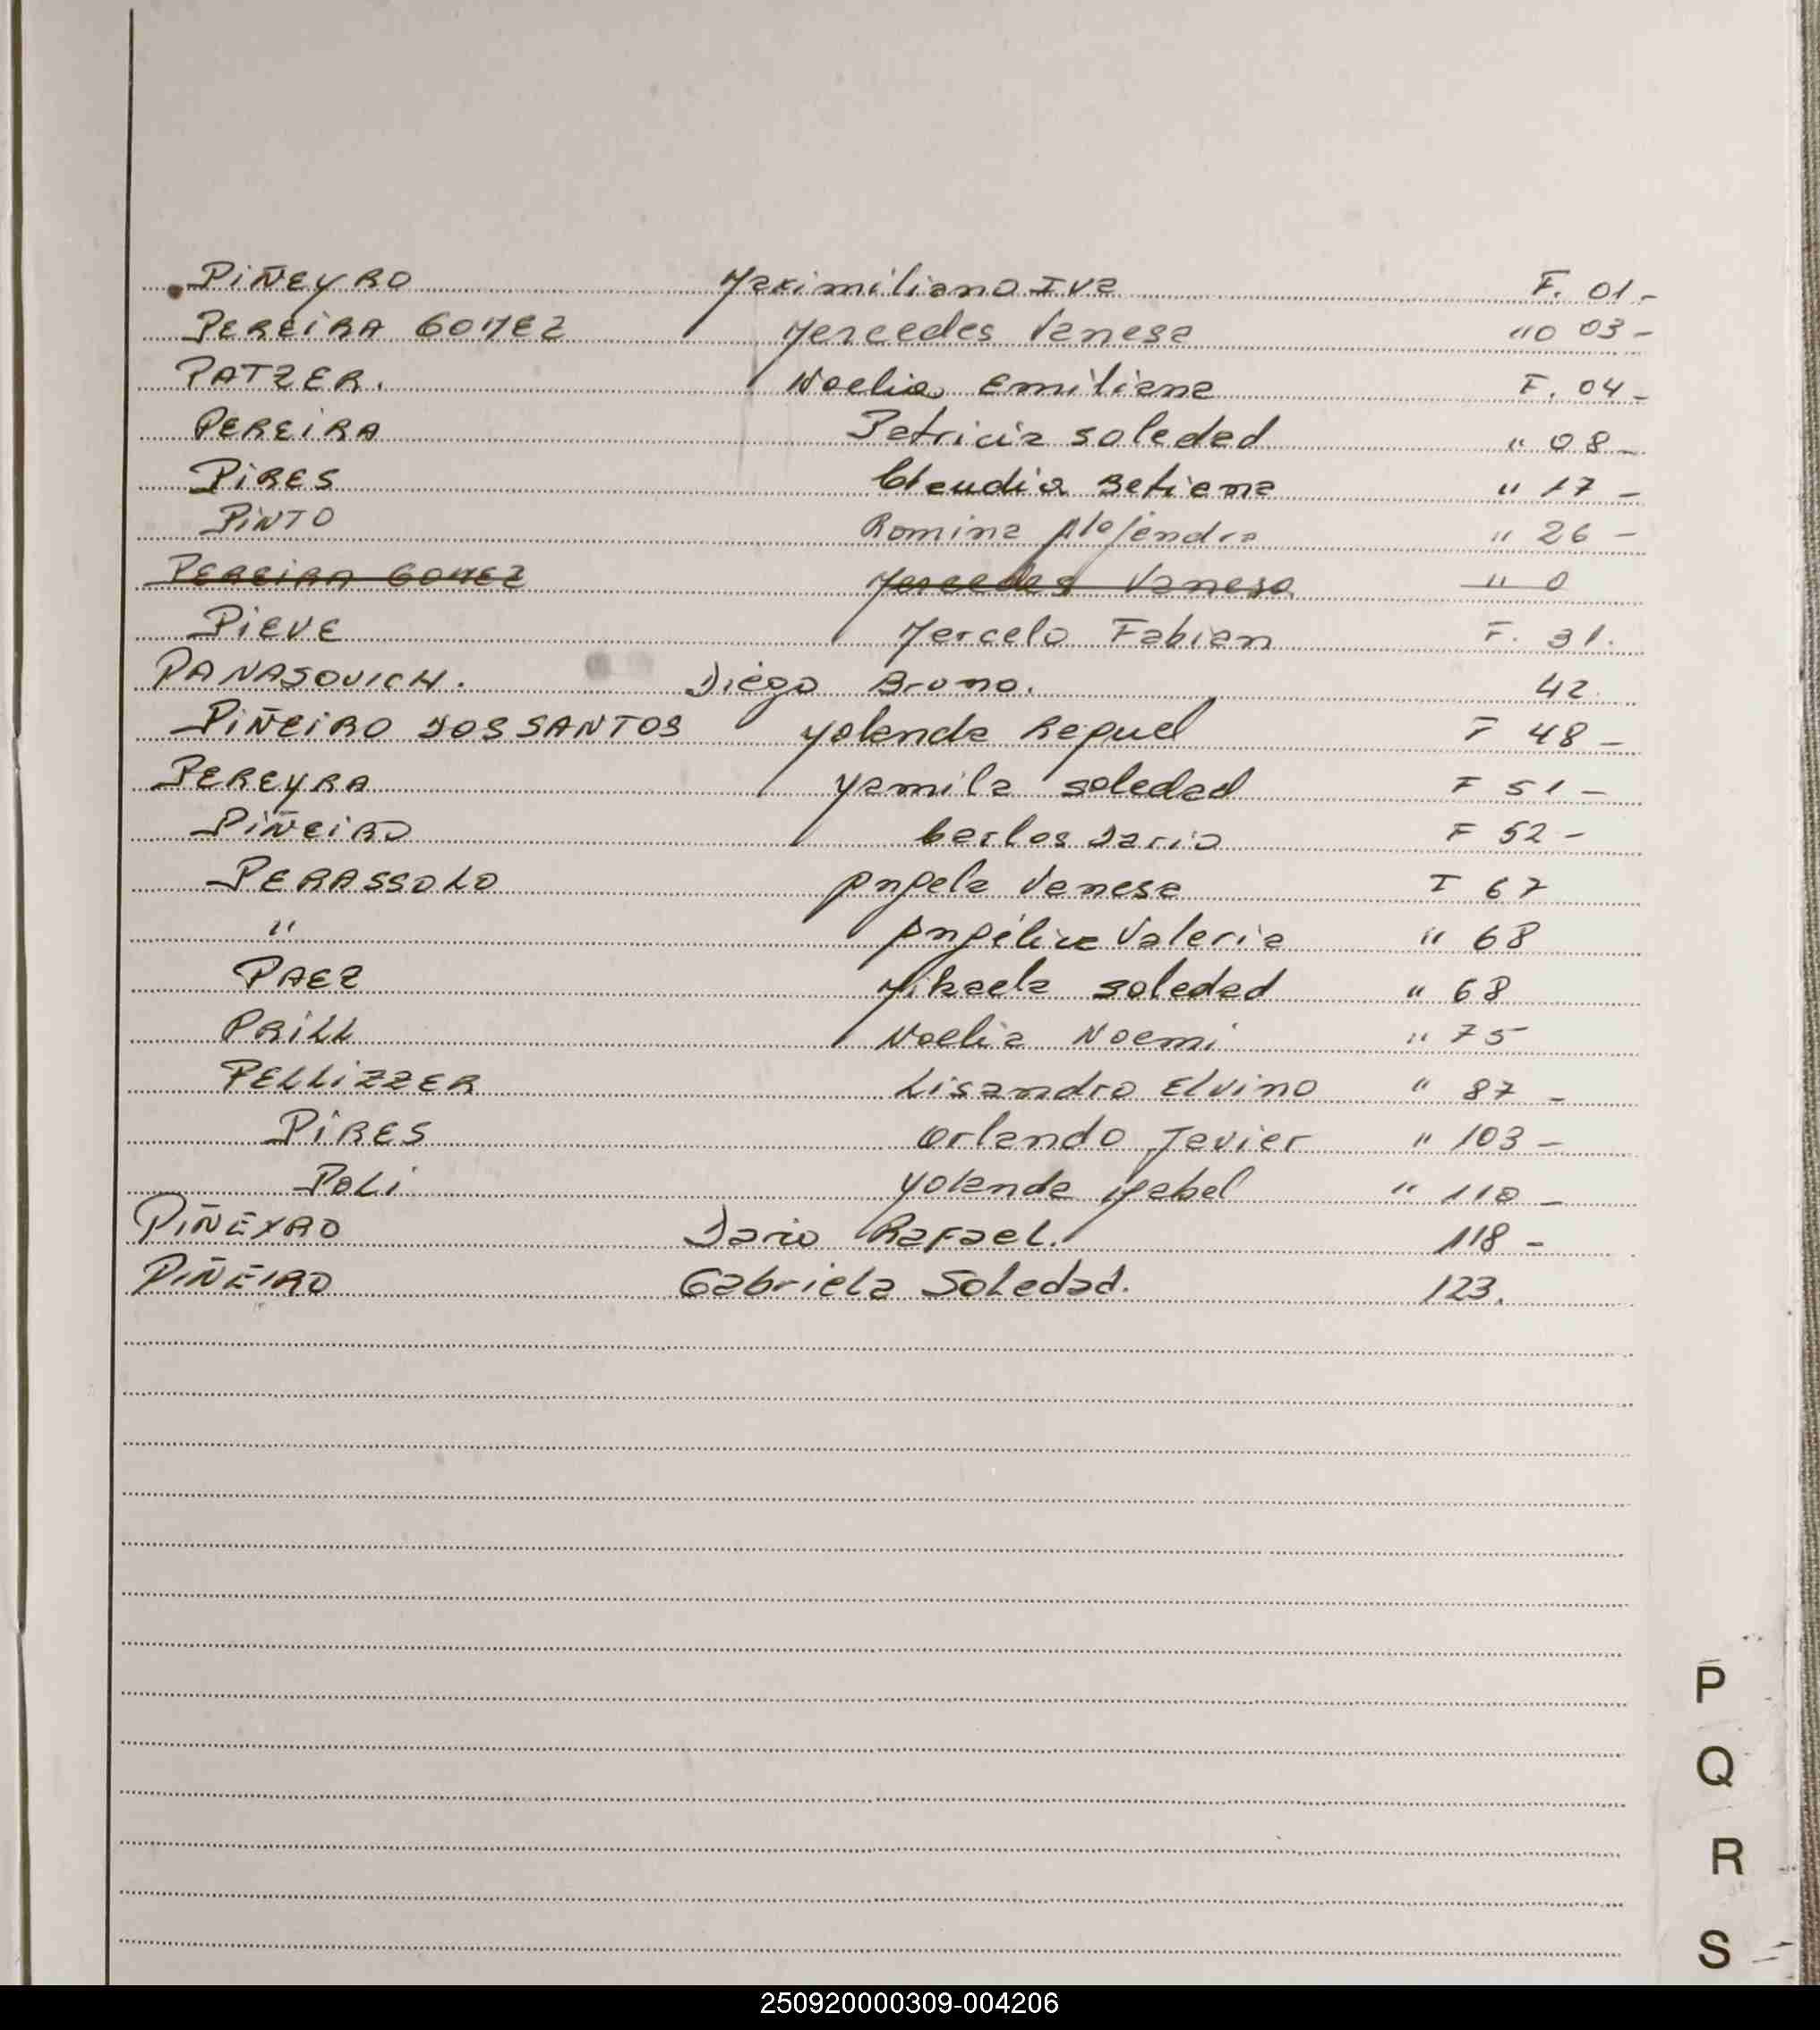 PIÑEYRO Maximiliano Iva F. 01-
PEREIRA GOMEZ Mercedes Vanesa "0 03-
PATZER. Noelia Emiliana F. 04-
PEREIRA Patricia Soledad " 08-
PIRES Claudia Betiana " 17-
PINTO Romina Alejandra " 26-
PEREIRA GOMEZ Mercedes Vanesa " 0
PIEVE Marcelo Fabian F. 31.
PANASOVICH. Diego Bruno. 42.
PIÑEIRO DOS SANTOS Yolanda Raquel F 48-
PEREYRA Yamila Soledad F 51-
PIÑEIRO Carlos Dario F 52-
PERASSOLO Angela Vanesa F 67
" Angélica Valeria " 68
PAEZ Mikaela Soledad " 68
PRILL Noelia Noemi " 75
PELLIZZER Lisandro Elvino " 87-
PIRES Orlando Javier " 103-
POLI Yolanda Isabel " 110-
PIÑEYRO Dario Rafael. 118-
PIÑEIRO Gabriela Soledad. 123.
P
Q
R
S
250920000309-004206